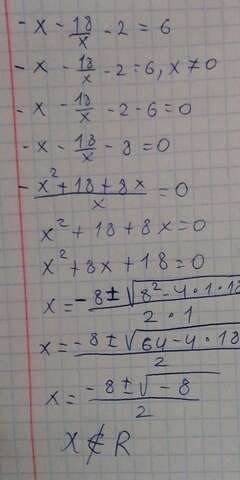 -x - 18/x - 2 = 6
-x - 18/x - 2 = 6, x ≠ 0
-x - 18/x - 2 - 6 = 0
-x - 18/x - 8 = 0
- (x² + 18 + 8x)/x = 0
x² + 18 + 8x = 0
x² + 8x + 18 = 0
x = (-8 ± √(8² - 4 · 1 · 18))/(2 · 1)
x = (-8 ± √(64 - 4 · 18))/2
x = (-8 ± √(-8))/2
x ∉ R